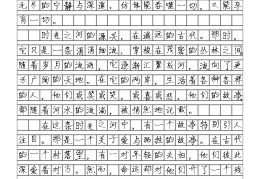 无尽的宁静与深邃，仿佛能吞噬一切，又能孕
育一切。
时光之河的源头，在遥远的古代。那时，
它只是一条涓涓细流，穿梭在茂密的丛林之间
随着岁月的流逝，它逐渐汇聚成河，流向了更
为广阔的天地。在它的两岸，生活着各种各样
的人，他们或笑或哭，或喜或悲，他们的故事
都随着河水的流淌，被悄然地记载。
在这条时光之河中，有一个故事特别引人
注目。那是一个关于爱与牺牲的故事。在古代
的一个村落里，有一对年轻的夫妇，他们彼此
深爱着对方。然而，命运却对他们开了一个残